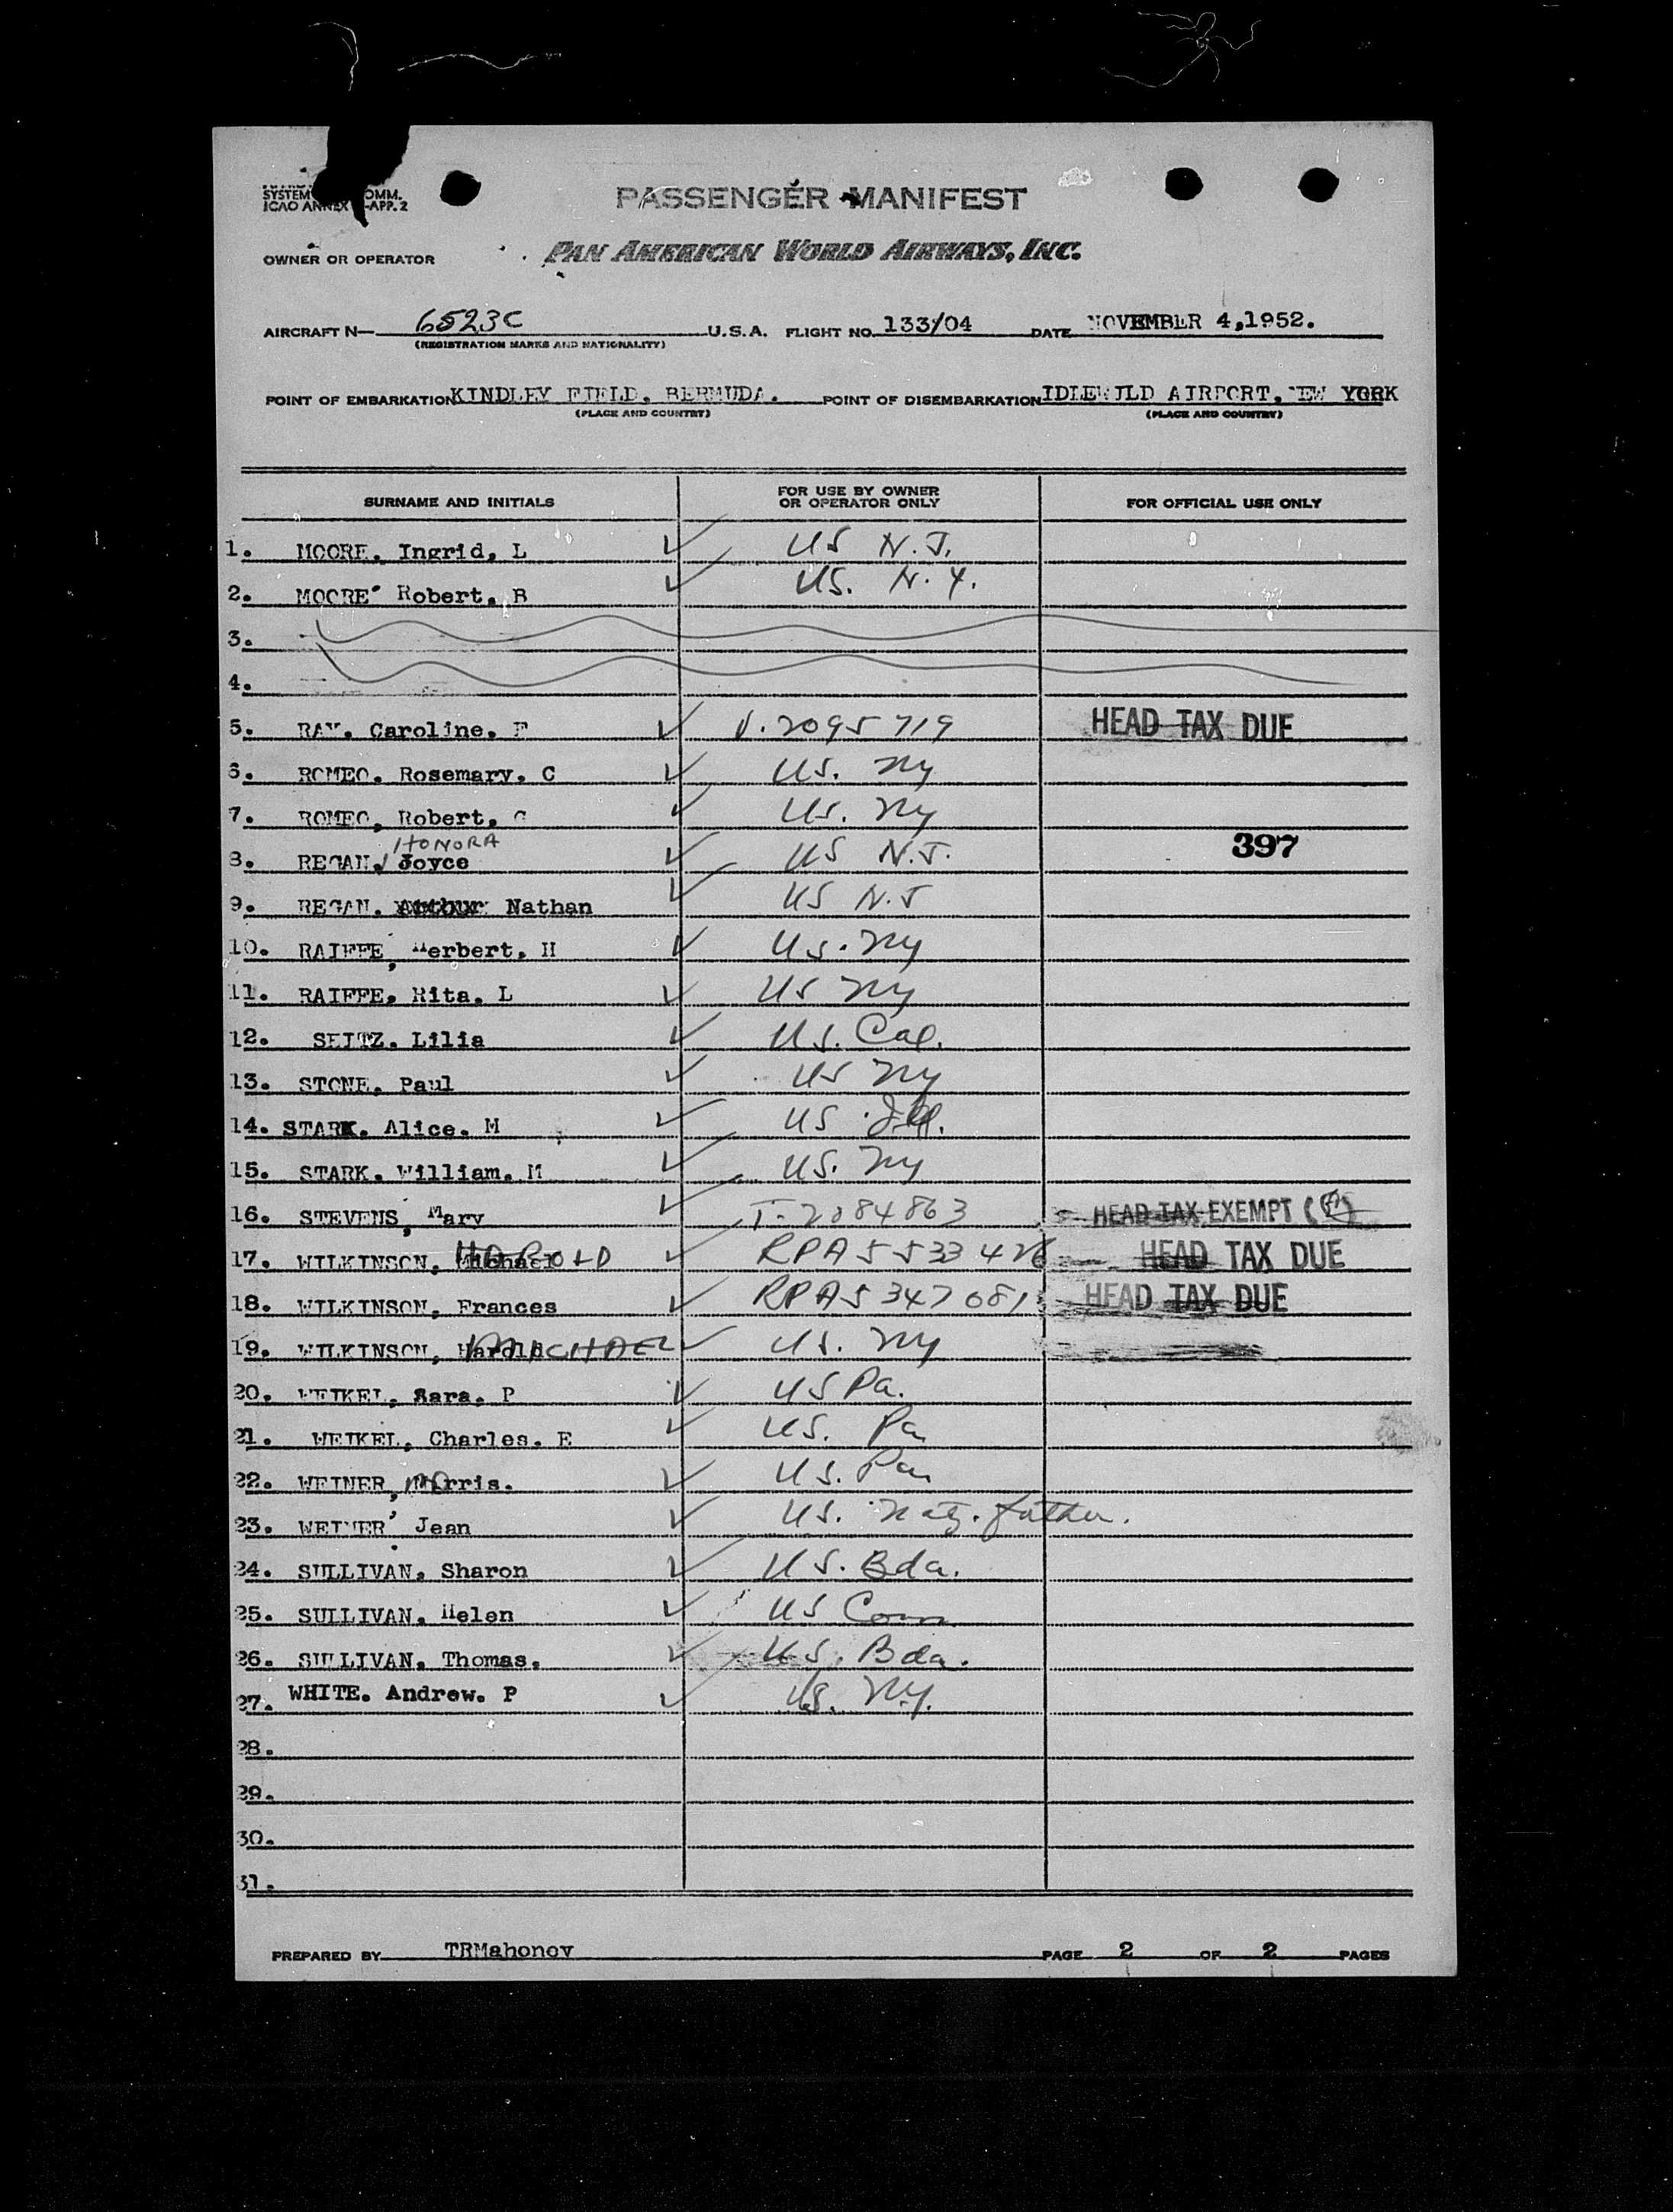 SYSTEM OMM.
ICAO ANNEX -APP. 2
PASSENGER MANIFEST
OWNER OR OPERATOR PAN AMERICAN WORLD AIRWAYS, INC.
AIRCRAFT N— 6523C U.S.A. FLIGHT NO. 133/04 DATE NOVEMBER 4,1952.
(REGISTRATION MARKS AND NATIONALITY)
POINT OF EMBARKATION KINDLEY FIELD. BERMUDA. POINT OF DISEMBARKATION IDLEWILD AIRPORT. NEW YORK
(PLACE AND COUNTRY) (PLACE AND COUNTRY)
SURNAME AND INITIALS FOR USE BY OWNER OR OPERATOR ONLY FOR OFFICIAL USE ONLY
1. MOORE. Ingrid. L US N.J.
2. MOORE' Robert. B US. N.Y.
3.
4.
5. RAY. Caroline. F V. 2095719 HEAD TAX DUE
6. ROMEO. Rosemary. C US. NY
7. ROMEO, Robert. C US. NY
HONORA
8. REGAN. Joyce US N.J. 397
9. REGAN. Arthur Nathan US N.J
10. RAIFFE, Herbert. H US. NY
11. RAIFFE. Rita. L US NY
12. SEITZ. Lilia US. Cal.
13. STONE. Paul US NY
14. STARK. Alice. M US Ill.
15. STARK. William. M US. NY
16. STEVENS, Mary T-2084863 HEAD TAX EXEMPT
17. WILKINSON, Michael HAROLD RPA 5533426 HEAD TAX DUE
18. WILKINSON, Frances RPA 5347081 HEAD TAX DUE
19. WILKINSON, Harold MICHAEL US. NY
20. WEIKEL, Sara. P US Pa.
21. WEIKEL, Charles. E US. Pa
22. WEINER, Morris. US. Pa
23. WEINER' Jean US. natz. father.
24. SULLIVAN. Sharon US. Bda.
25. SULLIVAN. Helen US Conn
26. SULLIVAN. Thomas. US. Bda.
27. WHITE. Andrew. P US. NY.
28.
29.
30.
31.
PREPARED BY TRMahoney PAGE 2 OF 2 PAGES